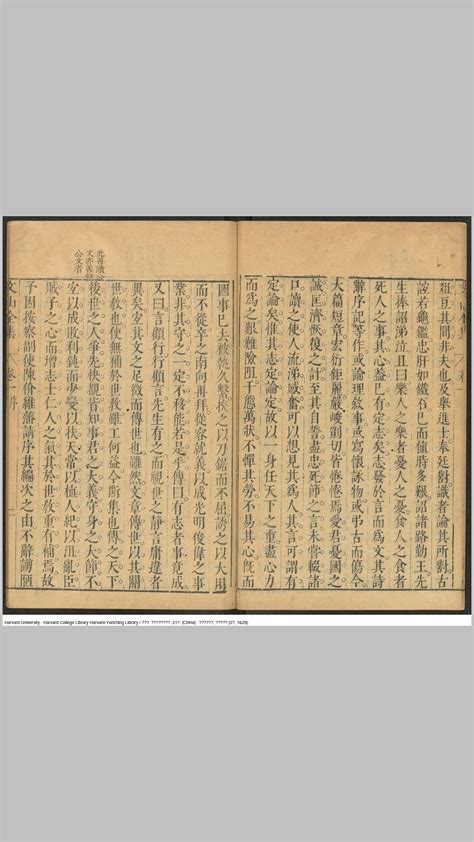 俎豆其間非夫也及舉進士奉廷對識者論其所對古
誼若龜鑑忠肝如鐵石已而值時多艱詔諸路勤王先
生捧詔涕泣且曰樂人之樂者憂人之憂食人之食者
死人之事其心蓋已有定志矣志發於言而為文其詩
辭序記等作或論理叙事或寫懷詠物或弔古而傷今
大篇短章宏衍鉅麗嚴峻剴切皆惓惓焉愛君憂國之
誠匡濟恢復之計至其自誓盡忠死節之言未嘗輟諸
口讀之使人流涕感奮可以想見其為人其言可謂有
定論矣惟其志定論定故以一身任天下之重盡心力
而為之艱難險阻千態萬狀不憚其勞不易其心旣而
國事已去被執久繫挨之以刀鋸而不屈誘之以大用
而不從卒之南向再拜從容就義以成光明俊偉之事
業非其守之一定不移能若是乎傳曰有志者事竟成
又曰言顧行行顧言先生有之而視世之靜言庸違者
異矣安其文之足徵而傳世也雖然文章傳世以其關
世教也使無補於世教雖工何益今斯集也傳之天下
後世之人爭先快覩皆知事君之大義守身之大節不
宜以成敗利鈍而少變以扶天常以植人紀以沮亂臣
賊子之心而增志士仁人之氣其於世教重有補焉
子因按察副使陳价維藩請序其編次之由不辭謭陋
文山全集
卷
序
此等讀公
文亦善讀
公文者
Harvard University - Harvard College Library Harvard-Yenching Library / ???. ???????? :21?. [China] : ??????, ????? [2?, 1629]